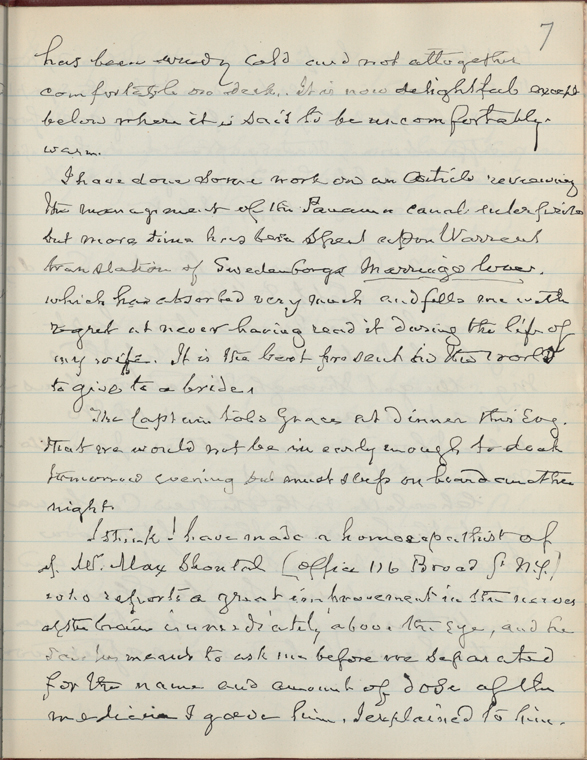 7
has been windy cold and not altogether
comfortable on deck. It is now delightful except
below where it is said to be uncomfortably
warm.
I have done some work on an Article reviewing
the management of the Panama canal enterprise
but more time has been spent upon Warrens
translation of Swedenborgs Marriage love.
which has absorbed very much and fills me with
regret at never having read it during the life of
my wife. It is the best present in the world
to give to a bride.
The Captain told Grace at dinner this Evg.
that we would not be in early enough to dock
tomorrow evening but must sleep on board another
night.
I think I have made a homoeopathist of
Max (office 116 Broad St N.Y.)
who reports a great improvement in the nerves
of the brain immediately above the Eye, and he
said he means to ask me before we separated
for the name and amount of dose of the
medicine I gave him. I explained to him.